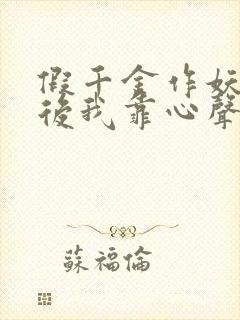 假千金作妖
後我靠心聲
蘇福倫